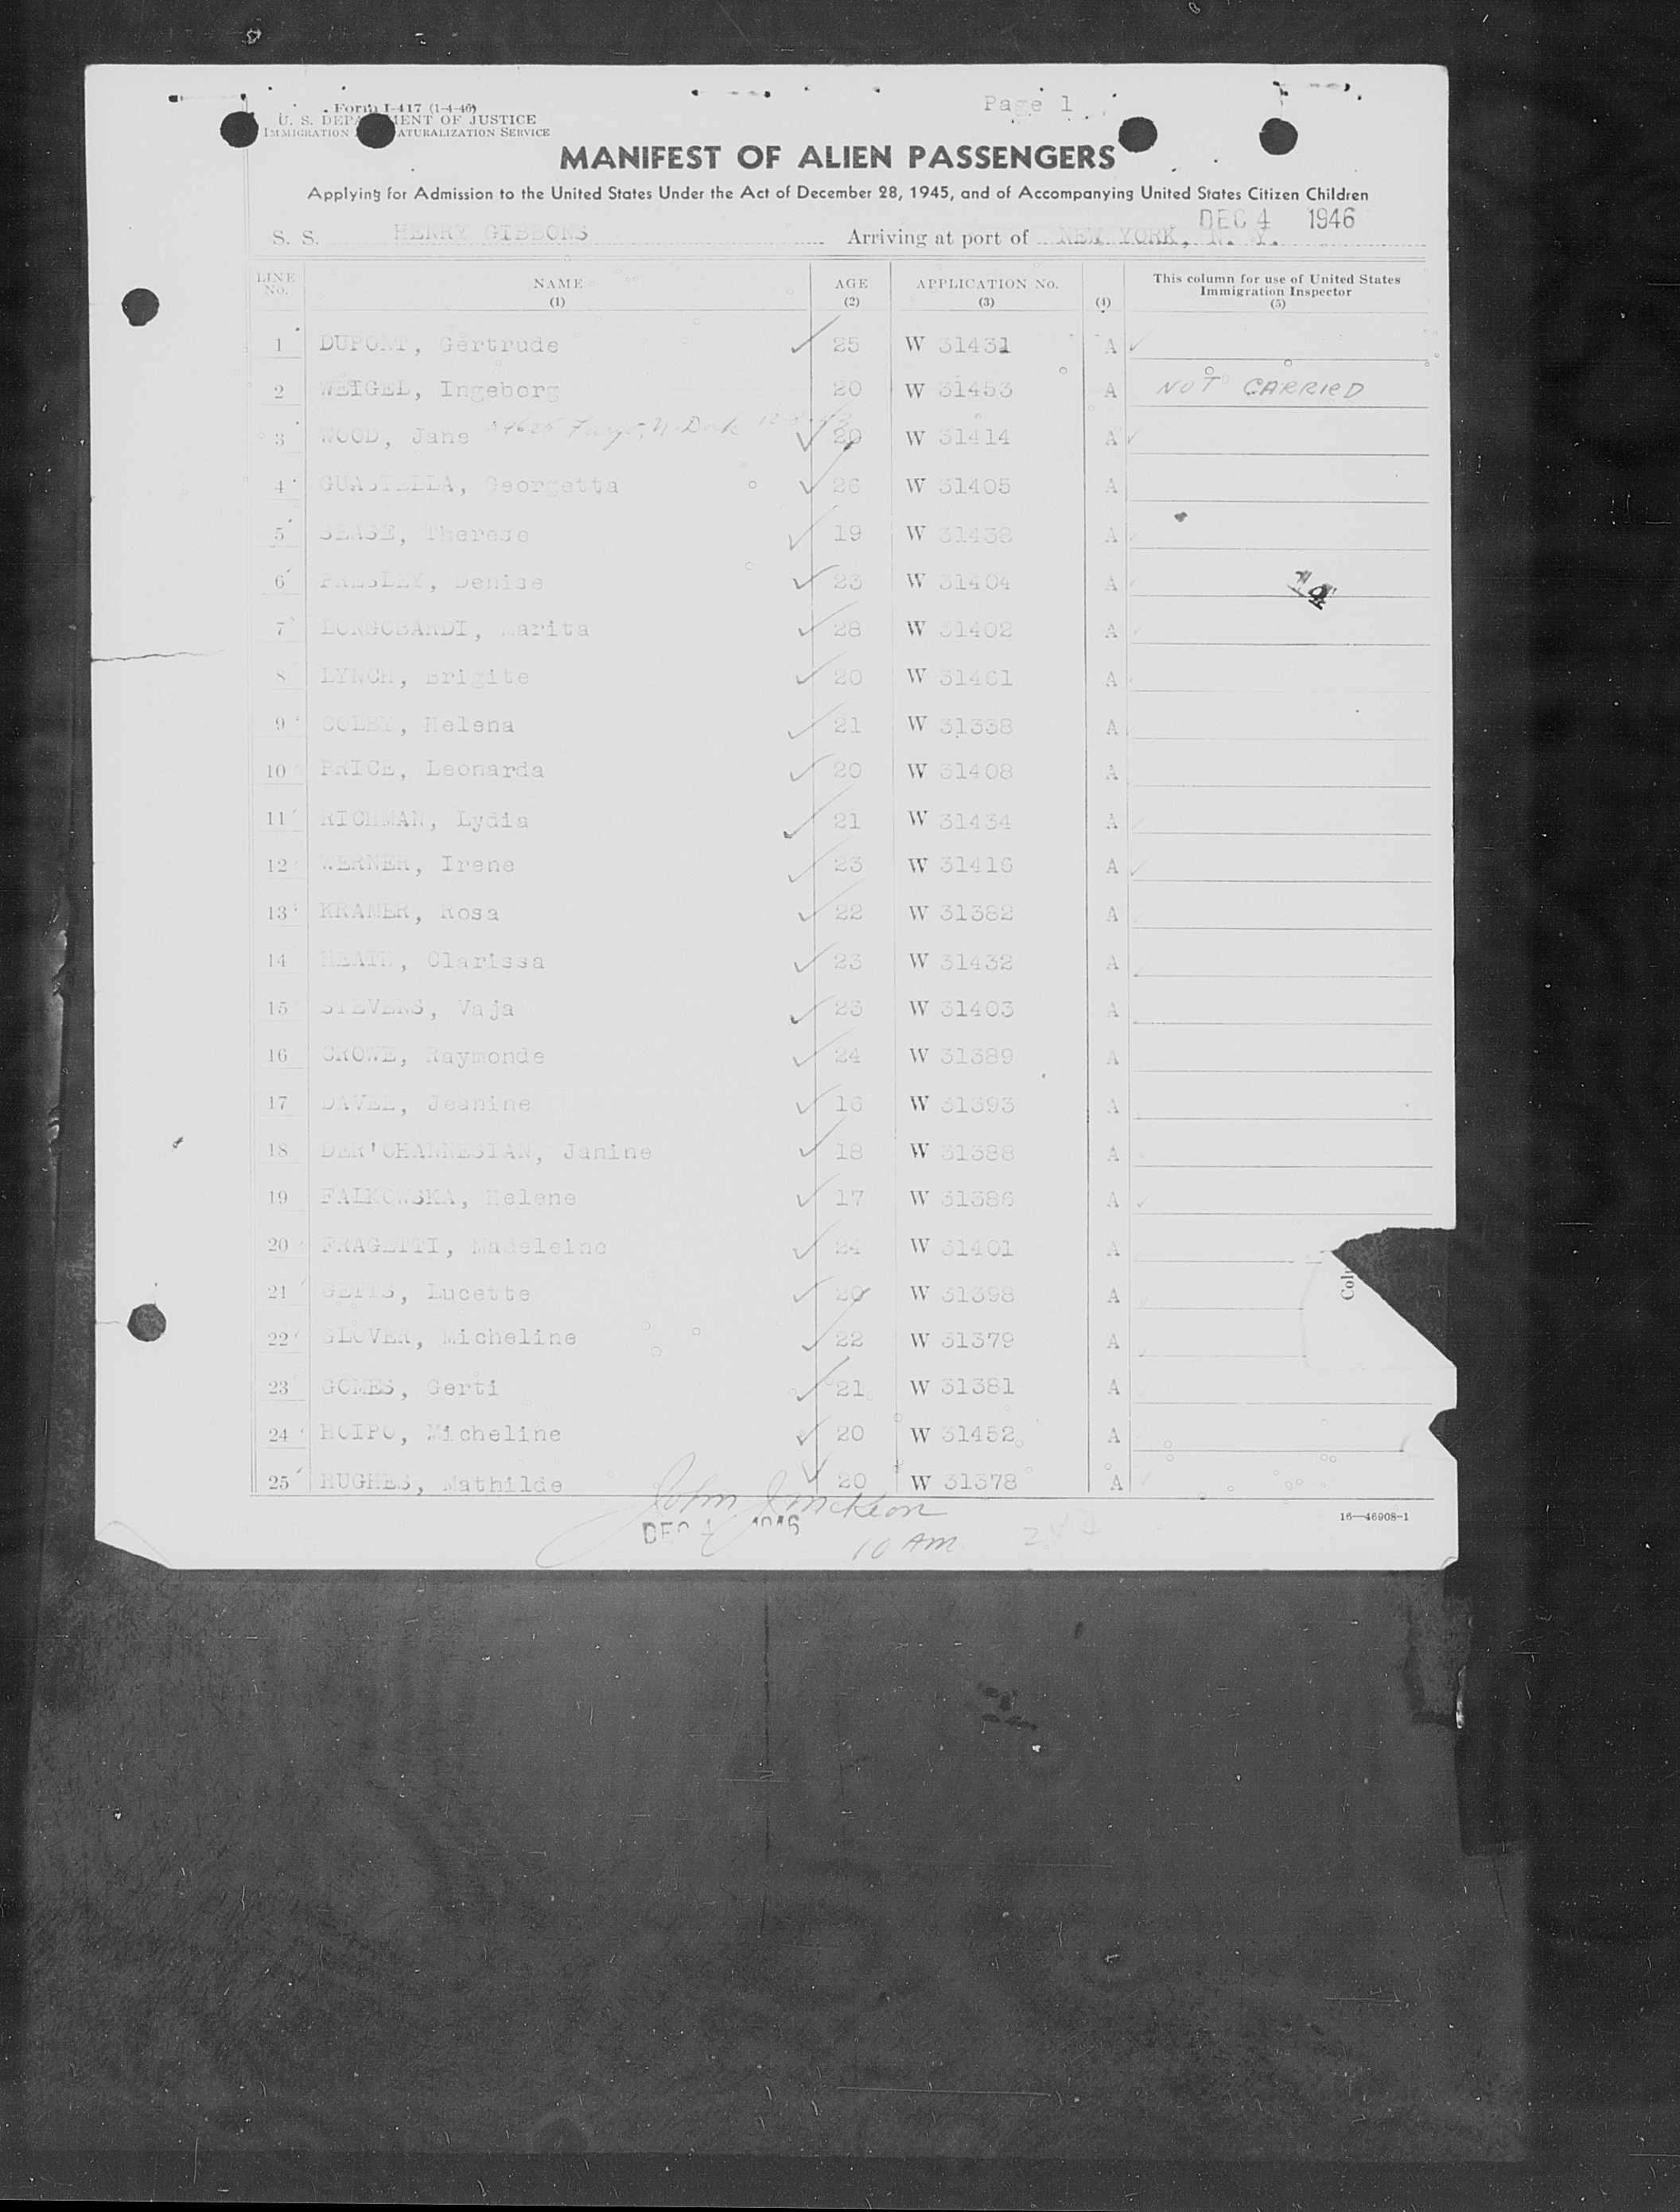 Form I-417 (1-4-46)
Page 1
U. S. DEPARTMENT OF JUSTICE
IMMIGRATION NATURALIZATION SERVICE
MANIFEST OF ALIEN PASSENGERS
Applying for Admission to the United States Under the Act of December 28, 1945, and of Accompanying United States Citizen Children
DEC 4 1946
S. S. HENRY GIBBONS Arriving at port of NEW YORK, N. Y.
LINE No. NAME (1) AGE (2) APPLICATION No. (3) (4) This column for use of United States Immigration Inspector (5)
1 DUPONT, Gertrude 25 W 31431 A
2 WEIGEL, Ingeborg 20 W 31453 A NOT CARRIED
3 WOOD, Jane Fargo, N. Dak 20 W 31414 A
4 GUASTELLA, Georgetta 26 W 31405 A
5 SEASE, Therese 19 W 31438 A
6 PRESLEY, Denise 23 W 31404 A
7 LONGOBARDI, Marita 28 W 31402 A
8 LYNCH, Brigite 20 W 31461 A
9 COLBY, Helena 21 W 31338 A
10 PRICE, Leonarda 20 W 31408 A
11 RICHMAN, Lydia 21 W 31434 A
12 WERNER, Irene 23 W 31416 A
13 KRAMER, Rosa 22 W 31382 A
14 HEATH, Clarissa 23 W 31432 A
15 STEVENS, Vaja 23 W 31403 A
16 CROWE, Raymonde 24 W 31389 A
17 DAVEL, Jeanine 16 W 31393 A
18 DER'OHANNESIAN, Janine 18 W 31388 A
19 FALKOWSKA, Helene 17 W 31386 A
20 FRAGETTI, Madeleine 24 W 31401 A
21 GETTS, Lucette 20 W 31398 A
22 GLOVER, Micheline 22 W 31379 A
23 GOMES, Gerti 21 W 31381 A
24 HOIPO, Micheline 20 W 31452 A
25 HUGHES, Mathilde 20 W 31378 A
John J McKeon
DEC 4 1946
10 AM
16—46908-1